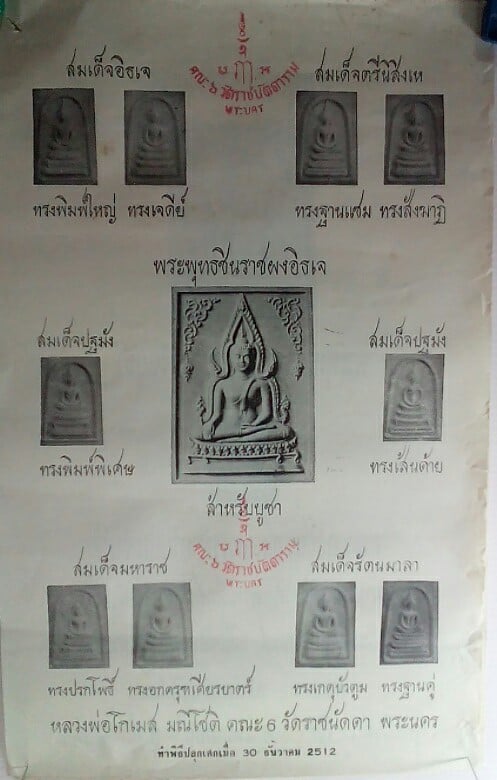 คณะ ๖ วัดราชนัดดาราม
พระนคร
สมเด็จอิธเจ
สมเด็จตรีนิสิงเห
ทรงพิมพ์ใหญ่ ทรงเจดีย์
ทรงฐานแซม ทรงสังฆาฏิ
พระพุทธชินราชผงอิธเจ
สมเด็จปฐมัง
สมเด็จปฐมัง
ทรงพิมพ์พิเศษ
ทรงเส้นด้าย
สำหรับบูชา
คณะ ๖ วัดราชนัดดาราม
พระนคร
สมเด็จมหาราช
สมเด็จรัตนมาลา
ทรงปรกโพธิ์ ทรงอกครุฑเศียรบาตร์
ทรงเกตุบัวตูม ทรงฐานคู่
หลวงพ่อโกเมส มณีโชติ คณะ 6 วัดราชนัดดา พระนคร
ทำพิธีปลุกเสกเมื่อ 30 ธันวาคม 2512